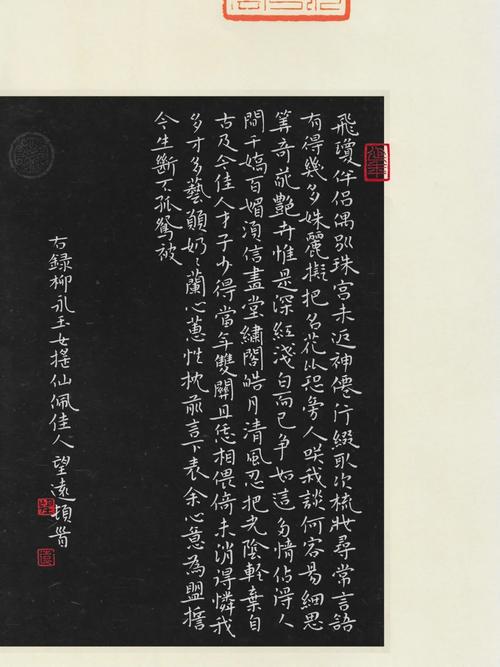 飛瓊伴侶偶別珠宮未返神僊行綴取次梳妝尋常言語
有得幾多姝麗擬把名花比恐旁人咲我談何容易細思
筭奇葩艷卉惟是深紅淺白而已爭如這多情佔得人
間千嬌百媚須信畫堂繡閣皓月清風忍把光陰輕棄自
古及今佳人才子少得當年雙關且恁相偎倚未消得憐我
多才多藝願奶々蘭心蕙性枕前言下表余心意為盟誓
今生斷不孤鴛被
右錄柳永玉女搖仙佩佳人 望遠頓首